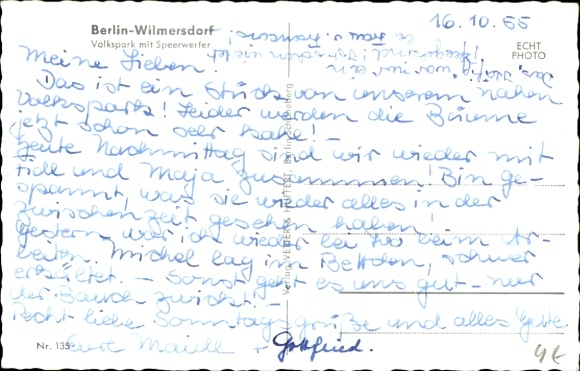 Berlin-Wilmersdorf
Volkspark mit Speerwerfer
16.10.55
ECHT
PHOTO
Meine Lieben!
Das ist ein Stück von unserem nahen
Volkspark! Leider werden die Bäume
jetzt schon sehr kahl! –
Heute Nachmittag sind wir wieder mit
und Maja zusammen! Bin ge-
spannt, was sie wieder alles in der
Zwischenzeit gesehen haben!
Gestern war ich wieder bei beim Ar-
beiten. Michel lag im Bettchen, schwer
erkältet. – Sonst geht es uns gut – nur
der Bauch zwickt. –
Recht liebe Sonntagsgrüße und alles Gute
Eure Maidl + Gottfried.
Verlag VETTER & HUFERT, Berlin-Schöneberg
Nr. 135
4€